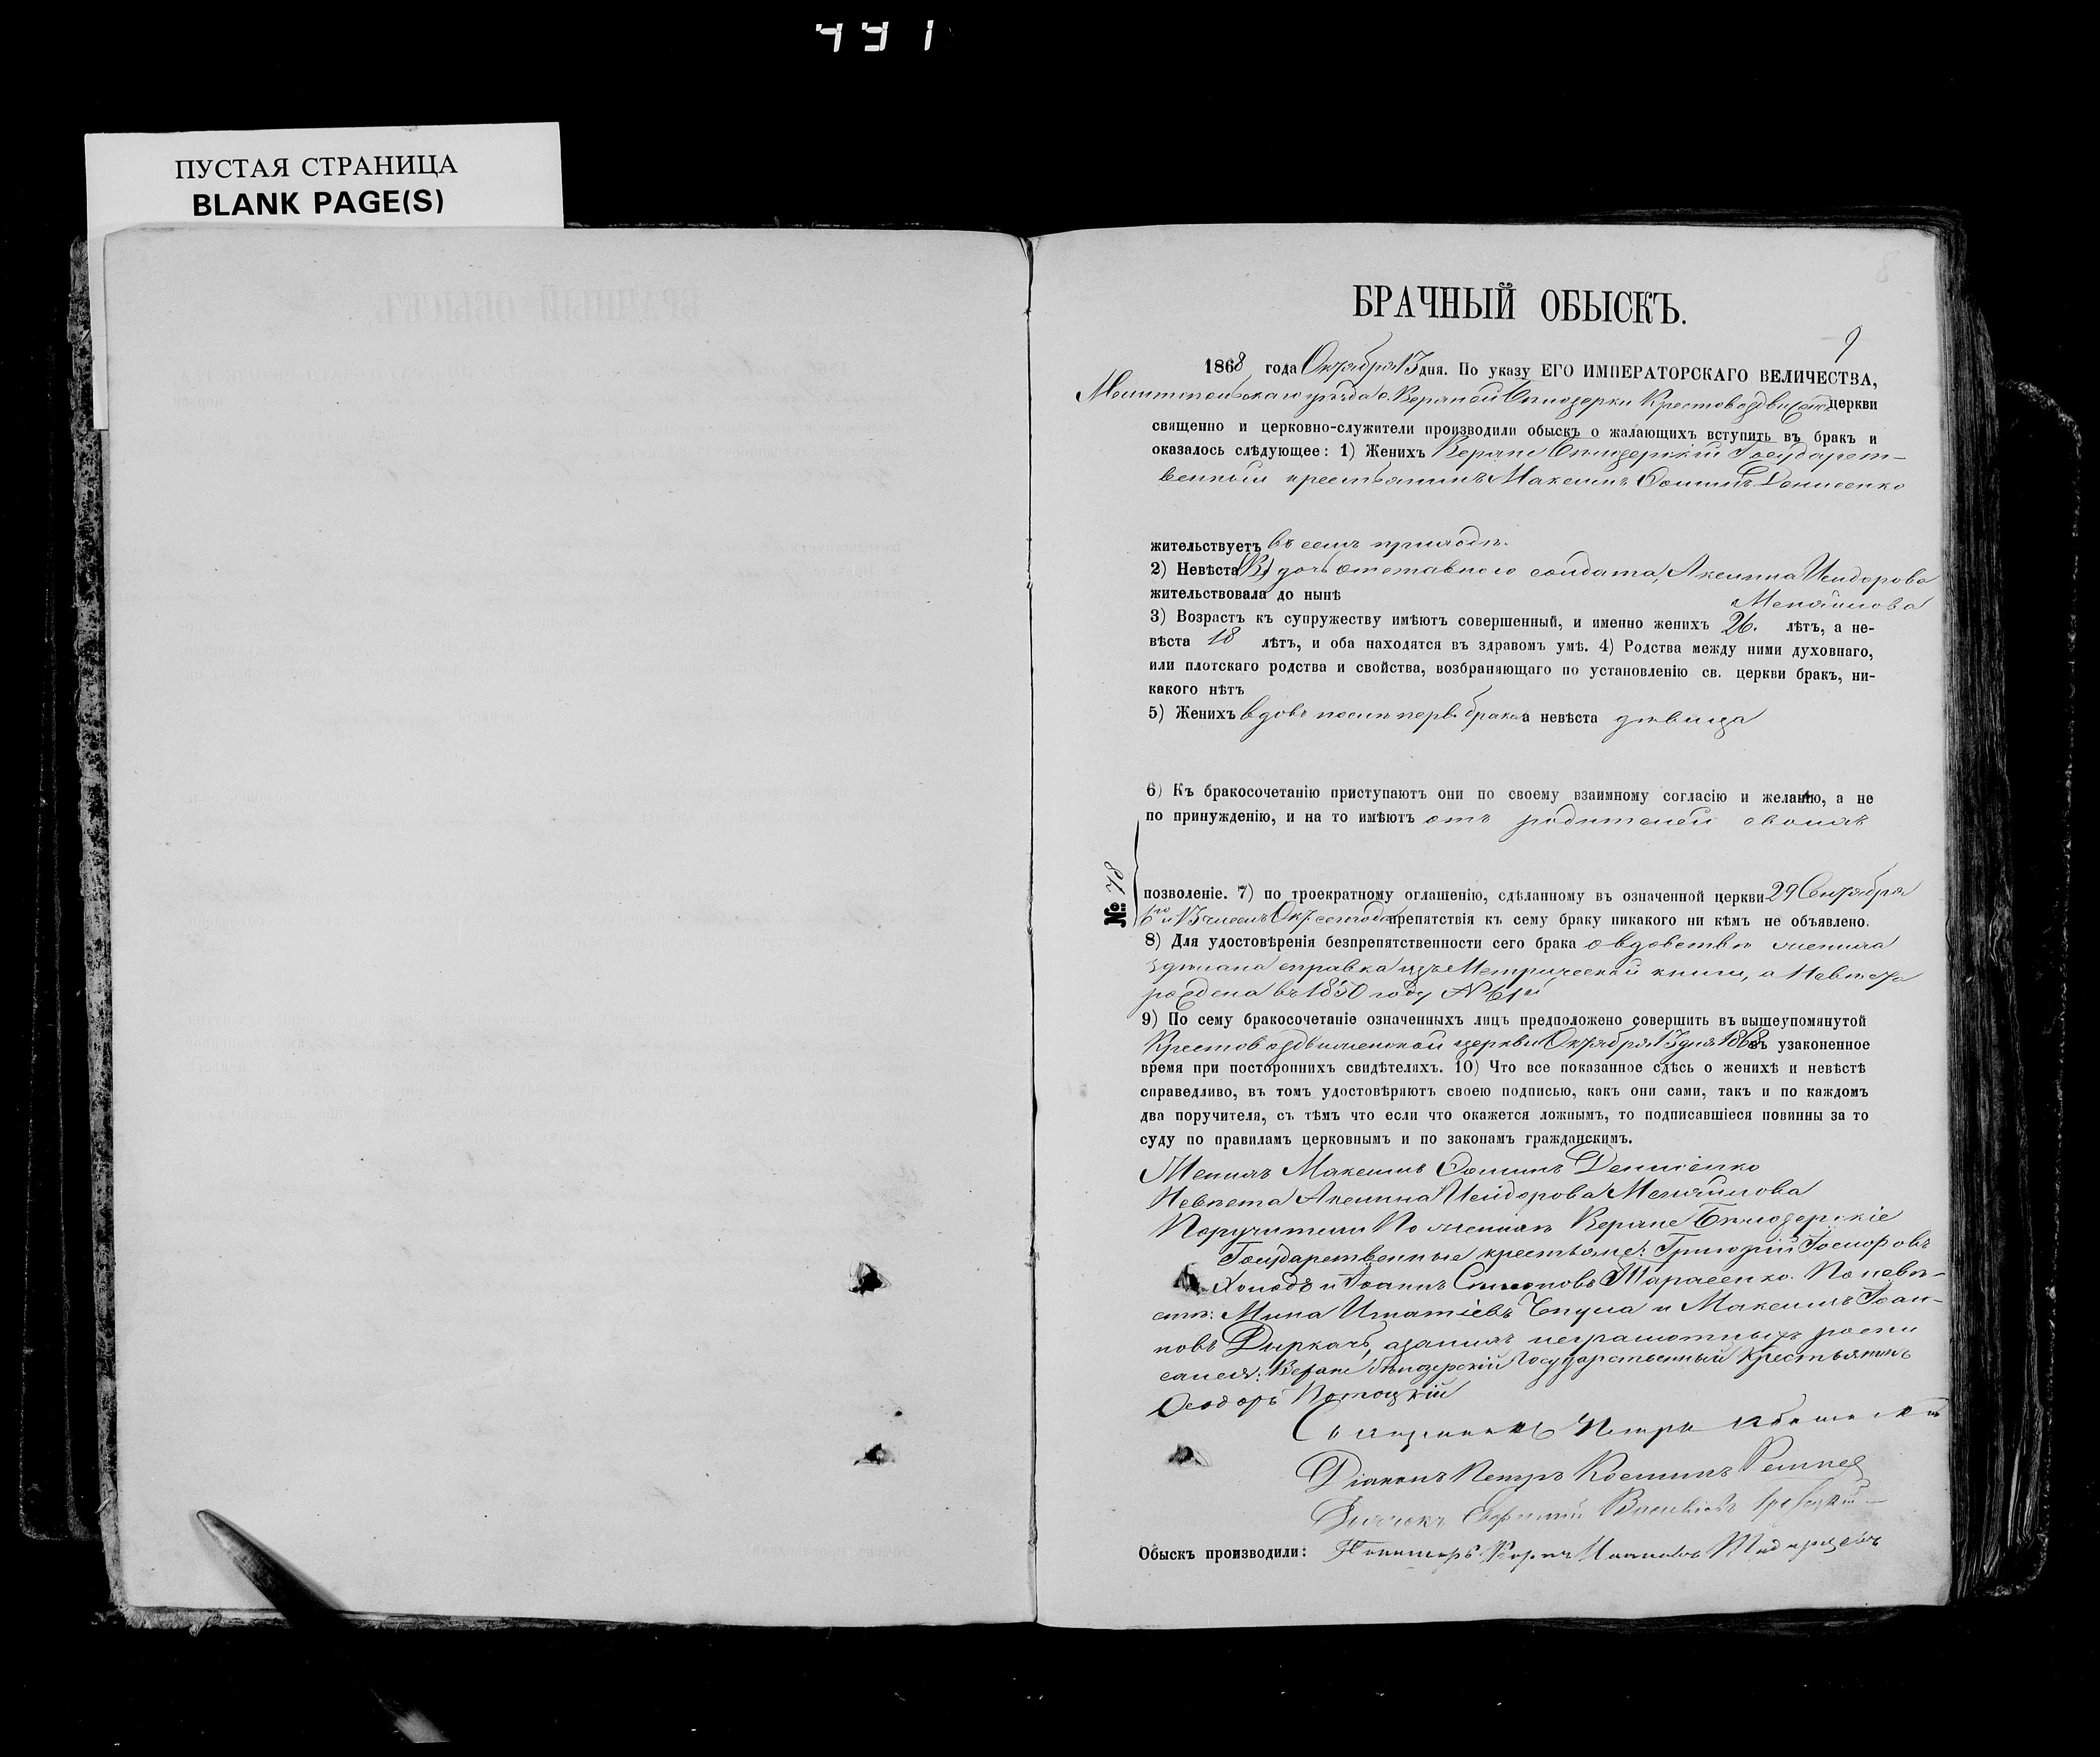 441
ПУСТАЯ СТРАНИЦА
BLANK PAGE(S)
8
БРАЧНЫЙ ОБЫСКЪ.
9
1868 года Октября 13 дня. По указу ЕГО ИМПЕРАТОРСКАГО ВЕЛИЧЕСТВА,
Мелитопольскаго уѣзда с. Верхней Бѣлозерки Крестовоздвиженс церкви
священно и церковно-служители производили обыскъ о жалающихъ вступить въ бракъ и
оказалось слѣдующее: 1) Женихъ Верхне Бѣлозерскій Государст-
венный крестьянинъ Максимъ Ѳоминъ Денисенко
жительствуетъ въ семъ приходѣ.
2) Невѣста дочь отставного солдата, Акелина Исидорова
жительствовала до нынѣ Меняйлова
3) Возрастъ къ супружеству имѣютъ совершенный, и именно женихъ 26. лѣтъ, а не-
вѣста 18 лѣтъ, и оба находятся въ здравомъ умѣ. 4) Родства между ними духовнаго,
или плотскаго родства и свойства, возбраняющаго по установленію св. церкви бракъ, ни-
какого нѣтъ
5) Женихъ вдовъ послѣ перв. брака а невѣста дѣвица
6) Къ бракосочетанію приступаютъ они по своему взаимному согласію и желанію, а не
по принужденію, и на то имѣютъ отъ родителей своихъ
№: 78
позволеніе. 7) по троекратному оглашенію, сдѣланному въ означенной церкви 29 Сентября
6го и 13 числъ Окт. сего года препятствія къ сему браку никакого ни кѣмъ не объявлено.
8) Для удостовѣренія безпрепятственности сего брака о вдовствѣ жениха
здѣлана справка изъ Метрической книги, а Невѣста
рождена въ 1850 году № 61й
9) По сему бракосочетаніе означенныхъ лицъ предположено совершить въ вышеупомянутой
Крестовоздвиженской церкви Октября 13 дня 1868 въ узаконенное
время при посторонихъ свидѣтеляхъ. 10) Что все показанное сдѣсь о женихѣ и невѣстѣ
справедливо, въ томъ удостовѣряютъ своею подписью, какъ они сами, такъ и по каждомъ
два поручителя, съ тѣмъ что если что окажется ложнымъ, то подписавшіеся повинны за то
суду по правиламъ церковнымъ и по законамъ гражданскимъ.
Женихъ Максимъ Ѳоминъ Денисенко
Невѣста Акелина Исидорова Меняйлова
Поручители По женихѣ Верхне Бѣлозерскіе
Государственные крестьяне: Григорій
Холодъ и Іоаннъ Симоновъ Тарасенко. По невѣ-
стѣ: Мина Игнатіевъ и Максимъ Іоан-
новъ Диркачъ, а за нихъ неграмотныхъ роспи
сался: Верхне Бѣлозерскій Государственный Крестьянинъ
Ѳеодоръ
Священникъ Петръ
Діаконъ Петръ Косминъ
Дьячокъ
Обыскъ производили: Пономарь